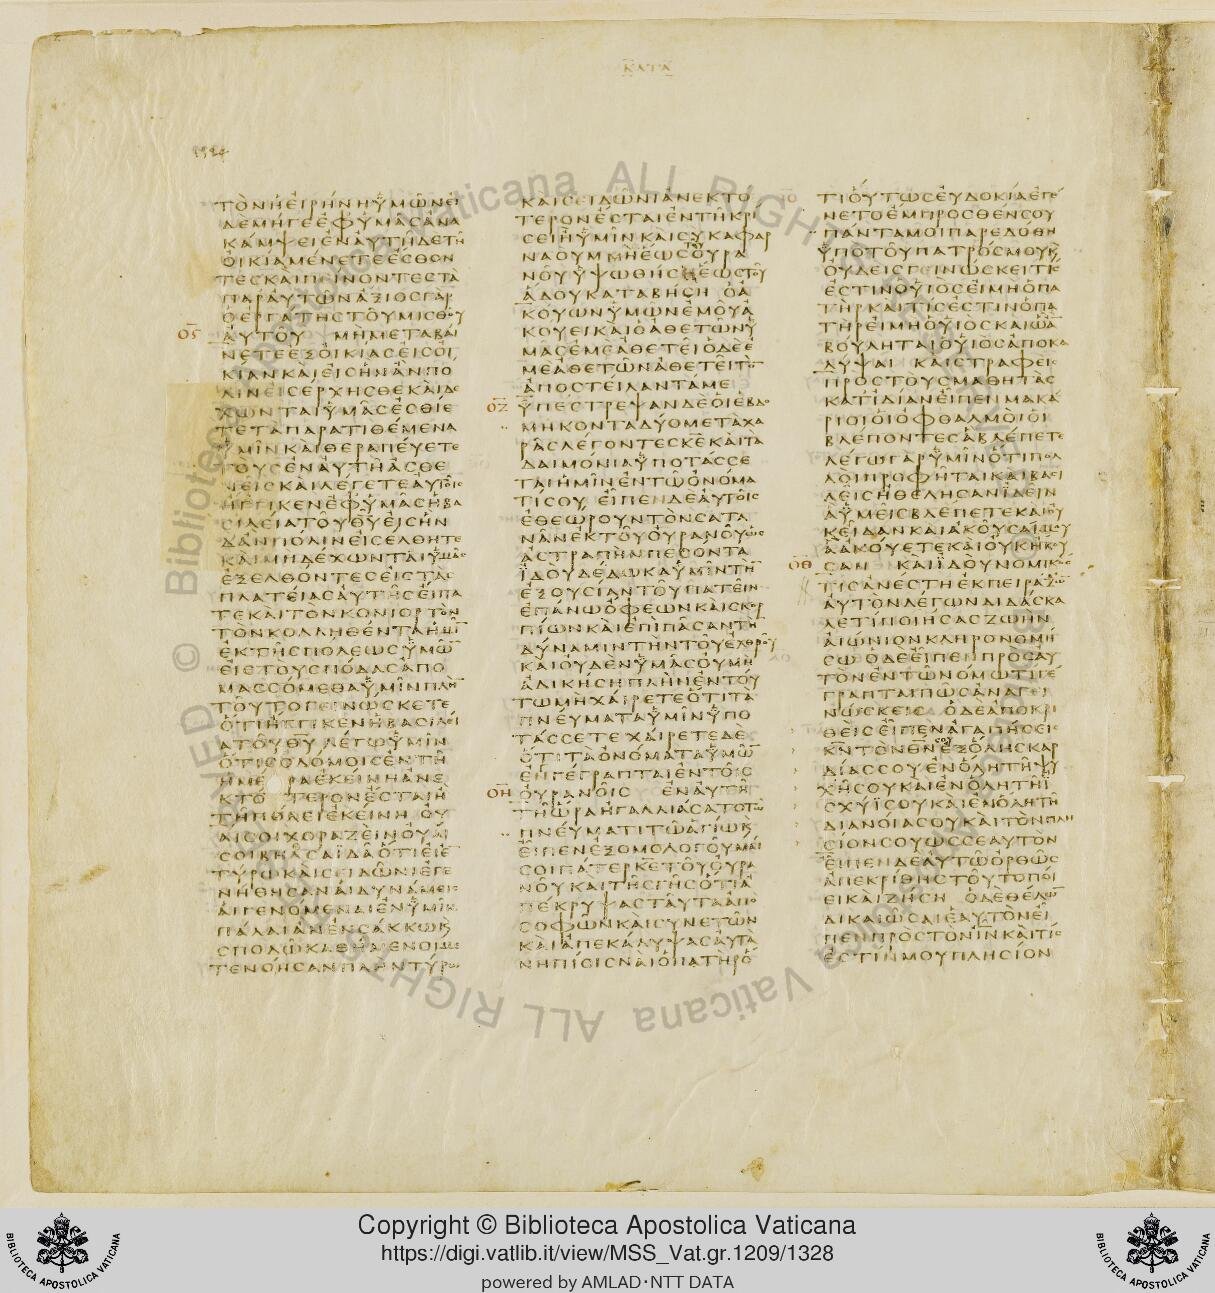 ΚΑΤΑ
1324
ΤΟΝΗΕΙΡΗΝΗΫΜΩΝΕΙ
ΔΕΜΗΓΕΕΦΫΜΑΣΑΝΑ
ΚΑΜΨΕΙΕΝΑΥΤΗΔΕΤΗ
ΟΙΚΙΑΜΕΝΕΤΕΕΣΘΟΝ
ΤΕΣΚΑΙΠΕΙΝΟΝΤΕΣΤΑ
ΠΑΡΑΥΤΩΝΑΞΙΟΣΓΑΡ
ΟΕΡΓΑΤΗΣΤΟΥΜΙΣΘΟΥ
Ος ΑΥΤΟΥ ΜΗΜΕΤΑΒΑΙ
ΝΕΤΕΕΞΟΙΚΙΑΣΕΙΣΟΙ
ΚΙΑΝΚΑΙΕΙΣΗΝΑΝΠΟ
ΛΙΝΕΙΣΕΡΧΗΣΘΕΚΑΙΔΕ
ΧΩΝΤΑΙΫΜΑΣΕΣΘΙΕ
ΤΕΤΑΠΑΡΑΤΙΘΕΜΕΝΑ
ΫΜΙΝΚΑΙΘΕΡΑΠΕΥΕΤΕ
ΤΟΥΣΕΝΑΥΤΗΑΣΘΕ
ΝΕΙΣΚΑΙΛΕΓΕΤΕΑΥΤΟΙΣ
ΗΓΓΙΚΕΝΕΦΫΜΑΣΗΒΑ
ΣΙΛΕΙΑΤΟΥΘΥΕΙΣΗΝ
ΔΑΝΠΟΛΙΝΕΙΣΕΛΘΗΤΕ
ΚΑΙΜΗΔΕΧΩΝΤΑΙΫΜΑΣ
ΕΞΕΛΘΟΝΤΕΣΕΙΣΤΑΣ
ΠΛΑΤΕΙΑΣΑΥΤΗΣΕΙΠΑ
ΤΕΚΑΙΤΟΝΚΟΝΙΟΡΤΟΝ
ΤΟΝΚΟΛΛΗΘΕΝΤΑΗΜΙΝ
ΕΚΤΗΣΠΟΛΕΩΣΫΜΩ
ΕΙΣΤΟΥΣΠΟΔΑΣΑΠΟ
ΜΑΣΣΟΜΕΘΑΫΜΙΝΠΛΗ
ΤΟΥΤΟΓΕΙΝΩΣΚΕΤΕ
ΟΤΙΗΓΓΙΚΕΝΗΒΑΣΙΛΕΙ
ΑΤΟΥΘΥ ΛΕΓΩΫΜΙΝ
ΟΤΙΣΟΔΟΜΟΙΣΕΝΤΗ
ΗΜΕΡΑΕΚΕΙΝΗΑΝΕ
ΚΤΟΤΕΡΟΝΕΣΤΑΙΗ
ΤΗΠΟΛΕΙΕΚΕΙΝΗ ΟΥ
ΑΙΣΟΙΧΟΡΑΖΕΙΝΟΥΑΙ
ΣΟΙΒΗΔΣΑΙΔΑΟΤΙΕΙΕ
ΤΥΡΩΚΑΙΣΕΙΔΩΝΙΕΓΕ
ΝΗΘΗΣΑΝΑΙΔΥΝΑΜΕΙΣ
ΑΙΓΕΝΟΜΕΝΑΙΕΝΫΜΙΝ
ΠΑΛΑΙΑΝΕΝΣΑΚΚΩΚ
ΣΠΟΔΩΚΑΘΗΜΕΝΟΙΜΕ
ΤΕΝΟΗΣΑΝΠΛΗΝΤΥΡΩ
ΚΑΙΣΕΙΔΩΝΙΑΝΕΚΤΟ
ΤΕΡΟΝΕΣΤΑΙΕΝΤΗΚΡΙ
ΣΕΙΗΫΜΙΝΚΑΙΣΥΚΑΦΑΡ
ΝΑΟΥΜΜΗΕΩΣΤΟΥΟΥΡΑ
ΝΟΥΫΨΩΘΗΣΗΕΩΣΤΟΥ
ΑΔΟΥΚΑΤΑΒΗΣΗ ΟΑ
ΚΟΥΩΝΫΜΩΝΕΜΟΥΑ
ΚΟΥΕΙΚΑΙΟΑΘΕΤΩΝΫ
ΜΑΣΕΜΕΑΘΕΤΕΙΟΔΕΕ
ΜΕΑΘΕΤΩΝΑΘΕΤΕΙΤΟ
ΑΠΟΣΤΕΙΛΑΝΤΑΜΕ
ΟΖ ΫΠΕΣΤΡΕΨΑΝΔΕΟΙΕΒΔΟ
ΜΗΚΟΝΤΑΔΥΟΜΕΤΑΧΑ
ΡΑΣΛΕΓΟΝΤΕΣΚΕΚΑΙΤΑ
ΔΑΙΜΟΝΙΑΫΠΟΤΑΣΣΕ
ΤΑΙΗΜΙΝΕΝΤΩΟΝΟΜΑ
ΤΙΣΟΥ ΕΙΠΕΝΔΕΑΥΤΟΙΣ
ΕΘΕΩΡΟΥΝΤΟΝΣΑΤΑ
ΝΑΝΕΚΤΟΥΟΥΡΑΝΟΥΩΣ
ΑΣΤΡΑΠΗΝΠΕΣΟΝΤΑ
ΪΔΟΥΔΕΔΩΚΑΫΜΙΝΤΗ
ΕΞΟΥΣΙΑΝΤΟΥΠΑΤΕΙΝ
ΕΠΑΝΩΟΦΕΩΝΚΑΙΣΚΟΡ
ΠΙΩΝΚΑΙΕΠΙΠΑΣΑΝΤΗ
ΔΥΝΑΜΙΝΤΗΝΤΟΥΕΧΘΡΟΥ
ΚΑΙΟΥΔΕΝΫΜΑΣΟΥΜΗ
ΑΔΙΚΗΣΗΠΛΗΝΕΝΤΟΥ
ΤΩΜΗΧΑΙΡΕΤΕΟΤΙΤΑ
ΠΝΕΥΜΑΤΑΫΜΙΝΫΠΟ
ΤΑΣΣΕΤΕΧΑΙΡΕΤΕΔΕ
ΟΤΙΤΑΟΝΟΜΑΤΑΫΜΩ
ΕΝΓΕΓΡΑΠΤΑΙΕΝΤΟΙΣ
ΟΗ ΟΥΡΑΝΟΙΣ ΕΝΑΥΤΗ
ΤΗΩΡΑΗΓΑΛΛΙΑΣΑΤΟΤΩ
ΠΝΕΥΜΑΤΙΤΩΑΓΙΩΚ
ΕΙΠΕΝΕΞΟΜΟΛΟΓΟΥΜΑΙ
ΣΟΙΠΑΤΕΡΚΕΤΟΥΟΥΡΑ
ΝΟΥΚΑΙΤΗΣΓΗΣΟΤΙΑ
ΠΕΚΡΥΨΑΣΤΑΥΤΑΑΠΟ
ΣΟΦΩΝΚΑΙΣΥΝΕΤΩΝ
ΚΑΙΑΠΕΚΑΛΥΨΑΣΑΥΤΑ
ΝΗΠΙΟΙΣΝΑΙΟΠΑΤΗΡΟ
ΤΙΟΥΤΩΣΕΥΔΟΚΙΑΕΓΕ
ΝΕΤΟΕΜΠΡΟΣΘΕΝΣΟΥ
ΠΑΝΤΑΜΟΙΠΑΡΕΔΟΘΗ
ΫΠΟΤΟΥΠΑΤΡΟΣΜΟΥΚ
ΟΥΔΕΙΣΓΕΙΝΩΣΚΕΙΤΙΣ
ΕΣΤΙΝΟΥΙΟΣΕΙΜΗΟΠΑ
ΤΗΡΚΑΙΤΙΣΕΣΤΙΝΟΠΑ
ΤΗΡΕΙΜΗΟΥΙΟΣΚΑΙΩΑ
ΒΟΥΛΗΤΑΙΟΥΙΟΣΑΠΟΚΑ
ΛΥΨΑΙ ΚΑΙΣΤΡΑΦΕΙΣ
ΠΡΟΣΤΟΥΣΜΑΘΗΤΑΣ
ΚΑΤΙΔΙΑΝΕΙΠΕΝΜΑΚΑ
ΡΙΟΙΟΙΟΦΘΑΛΜΟΙΟΙ
ΒΛΕΠΟΝΤΕΣΑΒΛΕΠΕΤΕ
ΛΕΓΩΓΑΡΫΜΙΝΟΤΙΠΟΛ
ΛΟΙΠΡΟΦΗΤΑΙΚΑΙΒΑΣΙ
ΛΕΙΣΗΘΕΛΗΣΑΝΪΔΕΙΝ
ΑΫΜΕΙΣΒΛΕΠΕΤΕΚΑΙΟΥ
ΚΕΙΔΑΝΚΑΙΑΚΟΥΣΑΙΜΟΥ
ΑΑΚΟΥΕΤΕΚΑΙΟΥΚΗΚΟΥ
ΟΘ ΣΑΝ ΚΑΙΪΔΟΥΝΟΜΙΚΟΣ
ΤΙΣΑΝΕΣΤΗΕΚΠΕΙΡΑΖΩ
ΑΥΤΟΝΛΕΓΩΝΔΙΔΑΣΚΑ
ΛΕΤΙΠΟΙΗΣΑΣΖΩΗΝ
ΑΙΩΝΙΟΝΚΛΗΡΟΝΟΜΗ
ΣΩ ΟΔΕΕΙΠΕΝΠΡΟΣΑΥ
ΤΟΝΕΝΤΩΝΟΜΩΤΙΓΕ
ΓΡΑΠΤΑΙΠΩΣΑΝΑΓΕΙ
ΝΩΣΚΕΙΣ ΟΔΕΑΠΟΚΡΙ
ΘΕΙΣΕΙΠΕΝΑΓΑΠΗΣΕΙΣ
ΚΝΤΟΝΘΝΣΟΥΕΞΟΛΗΣΚΑΡ
ΔΙΑΣΣΟΥΕΝΟΛΗΤΗΨΥ
ΧΗΣΟΥΚΑΙΕΝΟΛΗΤΗΙ
ΣΧΥΪΣΟΥΚΑΙΕΝΟΛΗΤΗ
ΔΙΑΝΟΙΑΣΟΥΚΑΙΤΟΝΠΛΗ
ΣΙΟΝΣΟΥΩΣΣΕΑΥΤΟΝ
ΕΙΠΕΝΔΕΑΥΤΩΟΡΘΩΣ
ΑΠΕΚΡΙΘΗΣΤΟΥΤΟΠΟΙ
ΕΙΚΑΙΖΗΣΗ ΟΔΕΘΕΛΩ
ΔΙΚΑΙΩΣΑΙΕΑΥΤΟΝΕΙ
ΠΕΝΠΡΟΣΤΟΝΙΝΚΑΙΤΙΣ
ΕΣΤΙΝΜΟΥΠΛΗΣΙΟΝ
Copyright © Biblioteca Apostolica Vaticana
https://digi.vatlib.it/view/MSS_Vat.gr.1209/1328
powered by AMLAD·NTT DATA
BIBLIOTECA APOSTOLICA VATICANA
BIBLIOTECA APOSTOLICA VATICANA